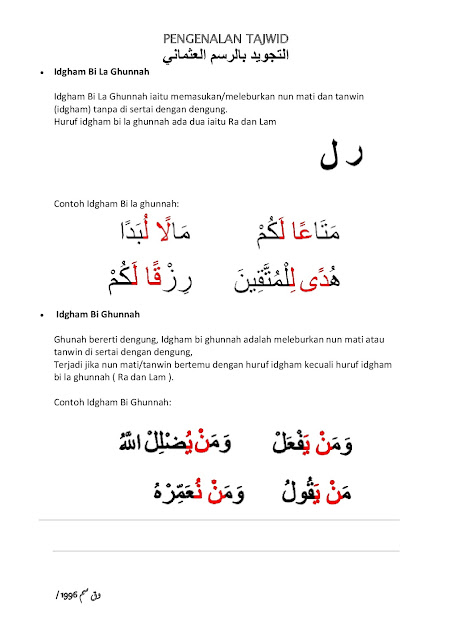 PENGENALAN TAJWID
التجويد بالرسم العثماني
• Idgham Bi La Ghunnah
Idgham Bi La Ghunnah iaitu memasukan/meleburkan nun mati dan tanwin
(idgham) tanpa di sertai dengan dengung.
Huruf idgham bi la ghunnah ada dua iaitu Ra dan Lam
ر ل
Contoh Idgham Bi la ghunnah:
مَتَاعًا لَكُمْ مَالًا لُبَدًا
هُدًى لِلْمُتَّقِينَ رِزْقًا لَكُمْ
• Idgham Bi Ghunnah
Ghunah bererti dengung, Idgham bi ghunnah adalah meleburkan nun mati atau
tanwin di sertai dengan dengung,
Terjadi jika nun mati/tanwin bertemu dengan huruf idgham kecuali huruf idgham
bi la ghunnah ( Ra dan Lam ).
Contoh Idgham Bi Ghunnah:
وَمَنْ يَفْعَلْ وَمَنْ يُضْلِلْ اللَّهُ
مَنْ يَقُولُ وَمَنْ نُعَمِّرْهُ
/ 1996